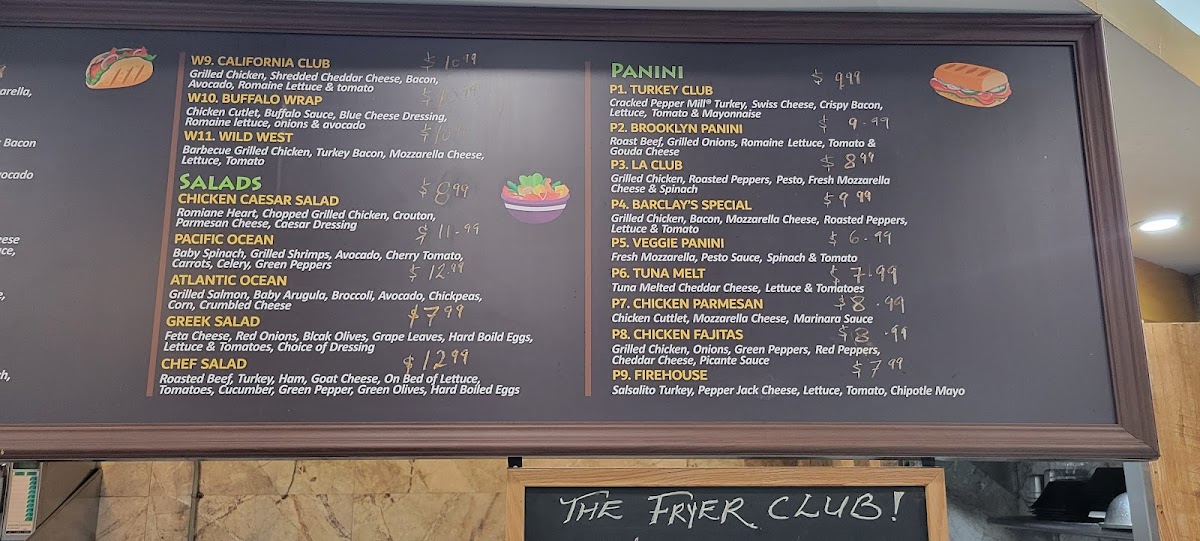 arella,
Bacon
vocado
eese
ce,
e,
ch,
W9. CALIFORNIA CLUB $ 10.99
Grilled Chicken, Shredded Cheddar Cheese, Bacon,
Avocado, Romaine Lettuce & tomato
W10. BUFFALO WRAP $ 10.99
Chicken Cutlet, Buffalo Sauce, Blue Cheese Dressing,
Romaine lettuce, onions & avocado
W11. WILD WEST
Barbecue Grilled Chicken, Turkey Bacon, Mozzarella Cheese,
Lettuce, Tomato
SALADS
CHICKEN CAESAR SALAD $ 8.99
Romiane Heart, Chopped Grilled Chicken, Crouton,
Parmesan Cheese, Caesar Dressing
PACIFIC OCEAN $ 11.99
Baby Spinach, Grilled Shrimps, Avocado, Cherry Tomato,
Carrots, Celery, Green Peppers
ATLANTIC OCEAN $ 12.99
Grilled Salmon, Baby Arugula, Broccoli, Avocado, Chickpeas,
Corn, Crumbled Cheese
GREEK SALAD $ 7.99
Feta Cheese, Red Onions, Blcak Olives, Grape Leaves, Hard Boild Eggs,
Lettuce & Tomatoes, Choice of Dressing
CHEF SALAD $ 12.99
Roasted Beef, Turkey, Ham, Goat Cheese, On Bed of Lettuce,
Tomatoes, Cucumber, Green Pepper, Green Olives, Hard Boiled Eggs
PANINI
P1. TURKEY CLUB $ 9.99
Cracked Pepper Mill® Turkey, Swiss Cheese, Crispy Bacon,
Lettuce, Tomato & Mayonnaise
P2. BROOKLYN PANINI $ 9.99
Roast Beef, Grilled Onions, Romaine Lettuce, Tomato &
Gouda Cheese
P3. LA CLUB $ 8.99
Grilled Chicken, Roasted Peppers, Pesto, Fresh Mozzarella
Cheese & Spinach
P4. BARCLAY'S SPECIAL $ 9.99
Grilled Chicken, Bacon, Mozzarella Cheese, Roasted Peppers,
Lettuce & Tomato
P5. VEGGIE PANINI $ 6.99
Fresh Mozzarella, Pesto Sauce, Spinach & Tomato
P6. TUNA MELT $ 7.99
Tuna Melted Cheddar Cheese, Lettuce & Tomatoes
P7. CHICKEN PARMESAN $ 8.99
Chicken Cuttlet, Mozzarella Cheese, Marinara Sauce
P8. CHICKEN FAJITAS $ 8.99
Grilled Chicken, Onions, Green Peppers, Red Peppers,
Cheddar Cheese, Picante Sauce
P9. FIREHOUSE $ 7.99
Salsalito Turkey, Pepper Jack Cheese, Lettuce, Tomato, Chipotle Mayo
THE FRYER CLUB!